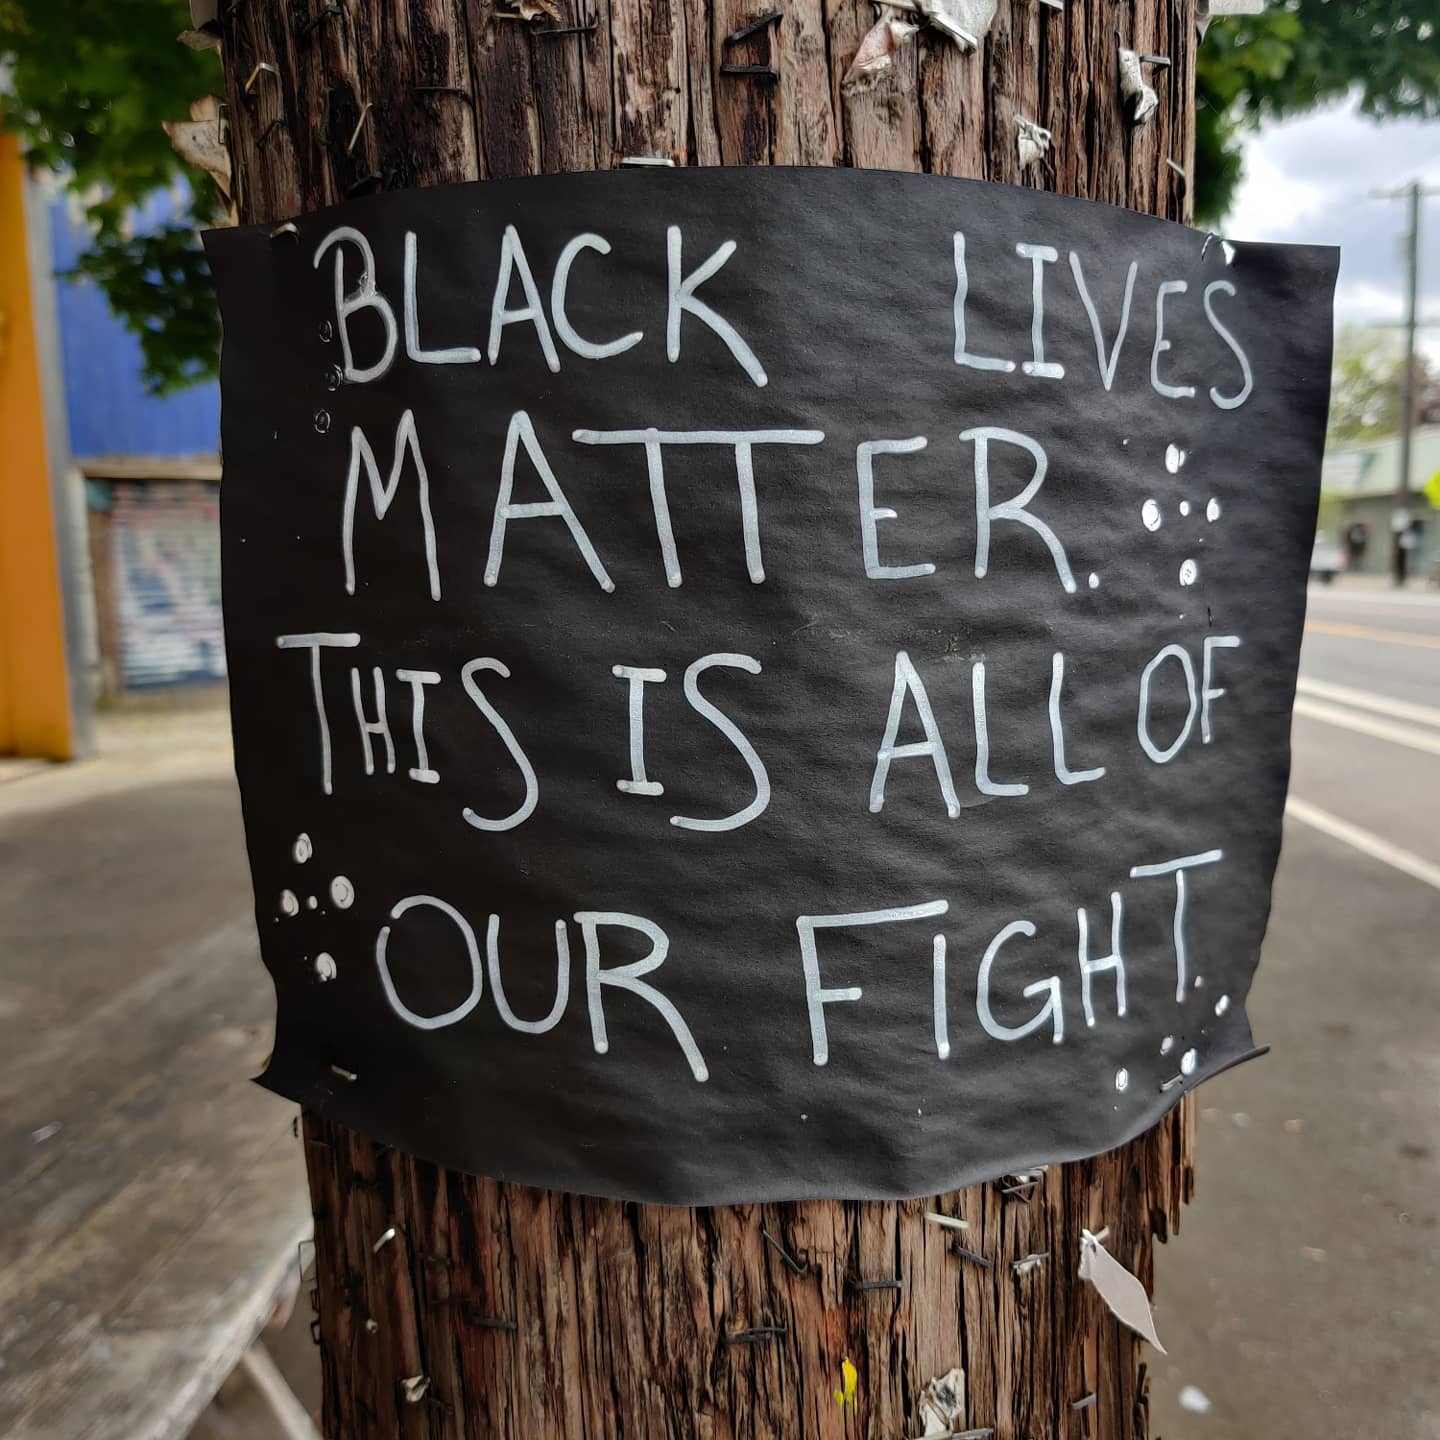 BLACK LIVES
MATTER.
THIS IS ALL OF
OUR FIGHT.